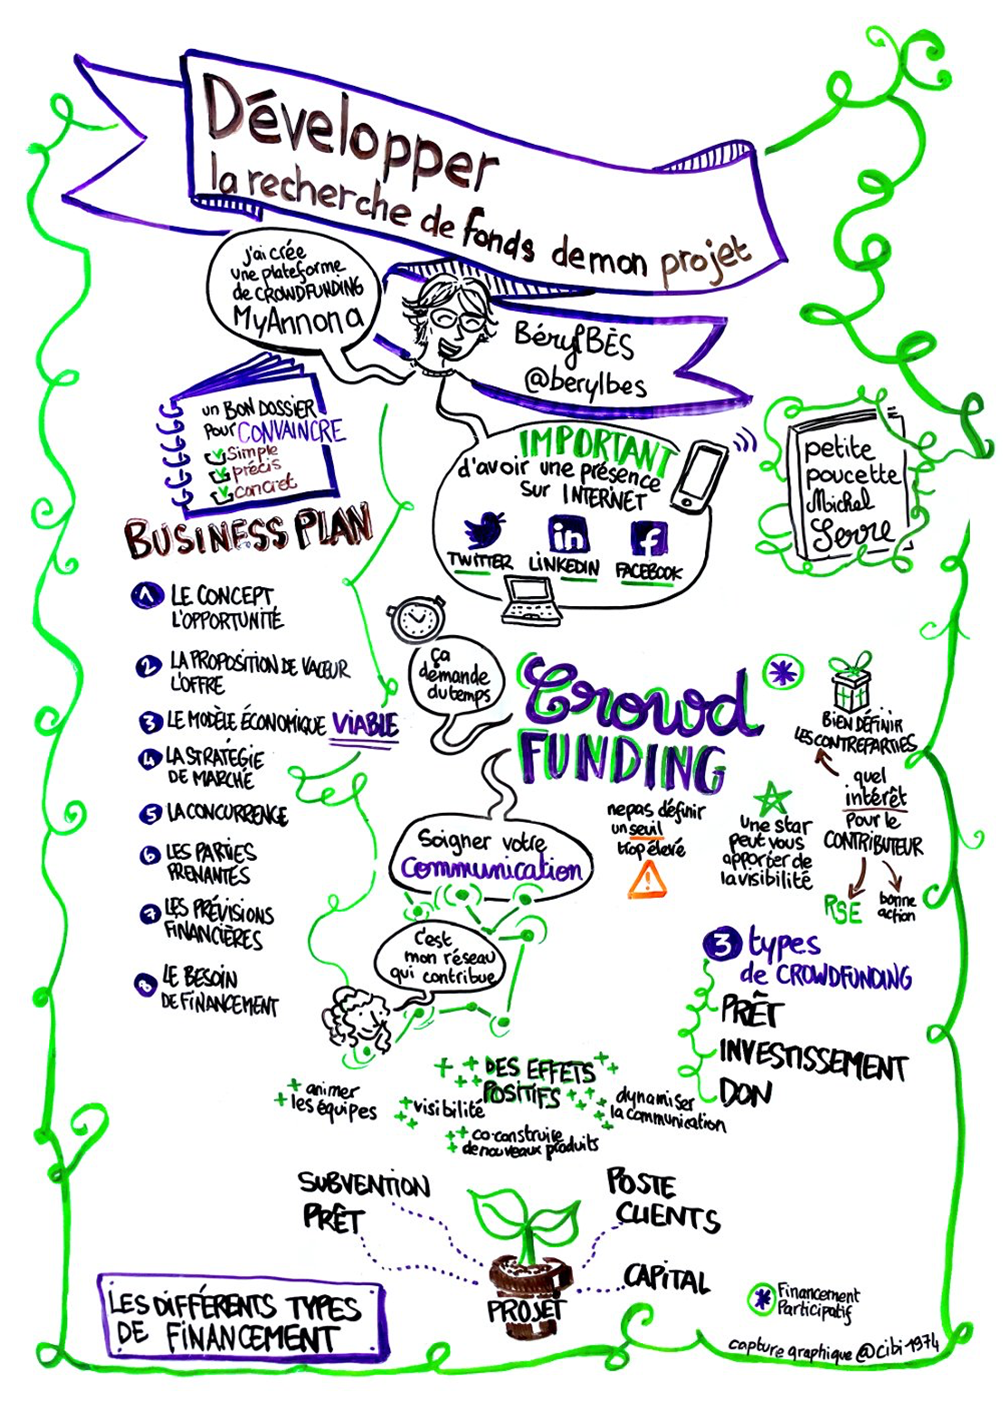 Développer
la recherche de fonds de mon projet
j'ai crée
une plateforme
de CROWDFUNDING
MyAnnona
Béryl BÈS
@berylbes
un BON DOSSIER
pour CONVAINCRE
simple
précis
concret
IMPORTANT
d'avoir une présence
sur INTERNET
TWITTER
in
LINKEDIN
f
FACEBOOK
petite
poucette
Michel
Serre
BUSINESS PLAN
1 LE CONCEPT
L'OPPORTUNITÉ
2 LA PROPOSITION DE VALEUR
L'OFFRE
3 LE MODÈLE ÉCONOMIQUE VIABLE
4 LA STRATÉGIE
DE MARCHÉ
5 LA CONCURRENCE
6 LES PARTIES
PRENANTES
7 LES PRÉVISIONS
FINANCIÈRES
8 LE BESOIN
DE FINANCEMENT
ça
demande
du temps
Crowd
FUNDING
*
BIEN DÉFINIR
LES CONTREPARTIES
quel
intérêt
pour le
CONTRIBUTEUR
RSE
bonne
action
ne pas définir
un seuil
trop élevé
!
une star
peut vous
apporter de
la visibilité
Soigner votre
communication
C'est
mon réseau
qui contribue
3 types
de CROWDFUNDING
PRÊT
INVESTISSEMENT
DON
DES EFFETS
POSITIFS
+ animer
+ les équipes
+ visibilité
dynamiser
la communication
co-construire
de nouveaux produits
SUBVENTION
PRÊT
POSTE
CLIENTS
CAPITAL
PROJET
LES DIFFÉRENTS TYPES
DE FINANCEMENT
* Financement
Participatif
capture graphique @cibi1974